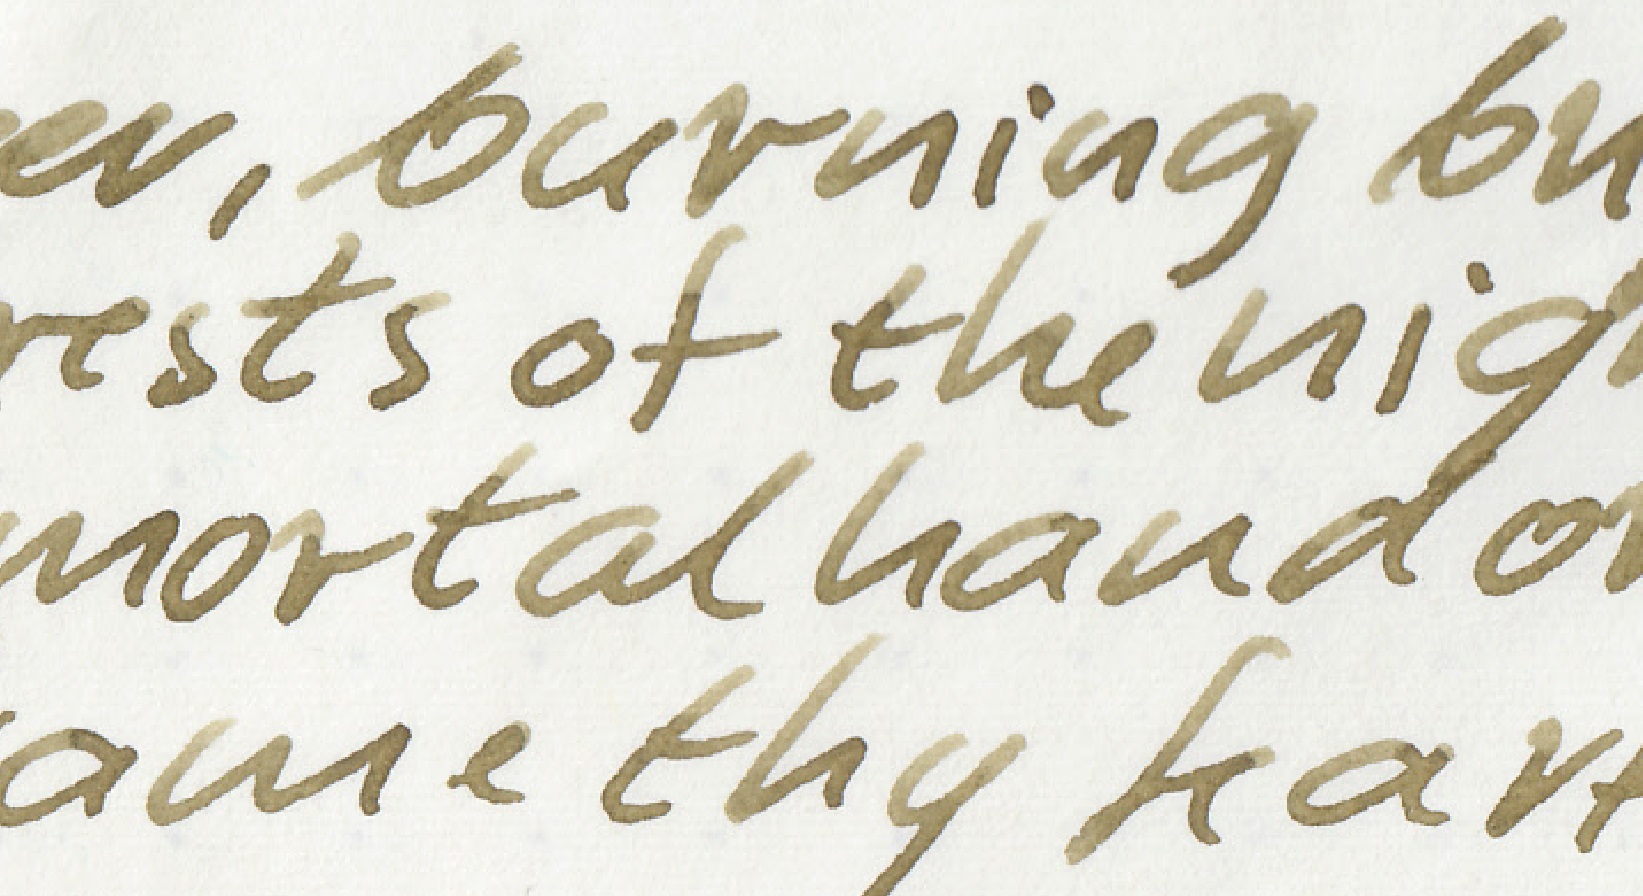 er, burning bu
rests of the nigh
mortal hand or
ame thy